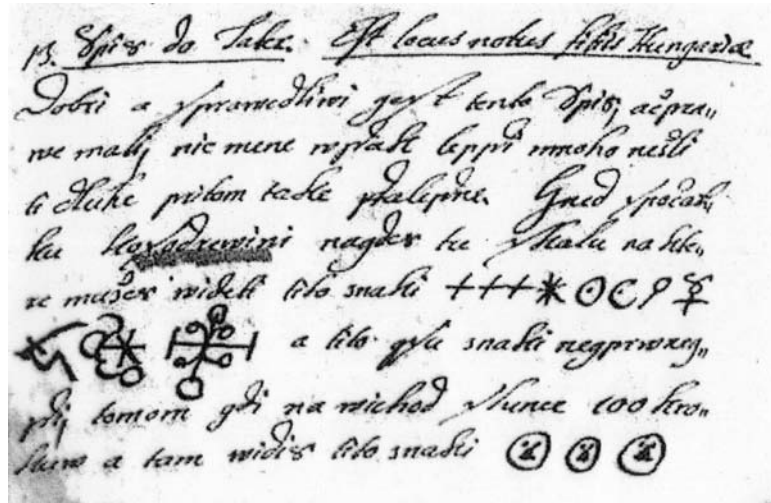 13. Spis do Tater. Est locus notus silis Hungariæ
Dobri a sprawedliwi gest tento Spis, ačpra„
we malij nic mene wssak lepssi mnoho nežli
ti dluhe pritom tacke Hned spočat„
ku nagdes tu skalu na kte„
re mužes wideti tito znaki
a tito gsu znaki negprwneg„
ssij tomom gdi na wichod slunce 100 kro„
kuw a tam widis tito znaki